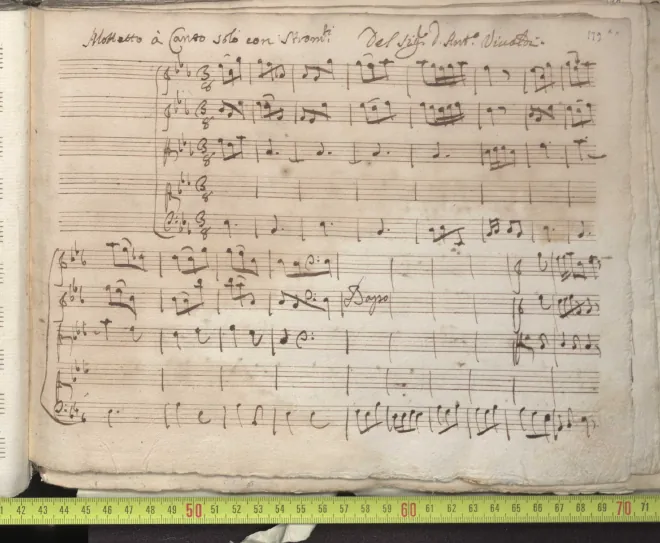 Mottetto à Canto solo con Strom.ti Del Sig.r D. Ant.o Vivaldi. 179
Basso
41 42 43 44 45 46 47 48 49 50 51 52 53 54 55 56 57 58 59 60 61 62 63 64 65 66 67 68 69 70 71